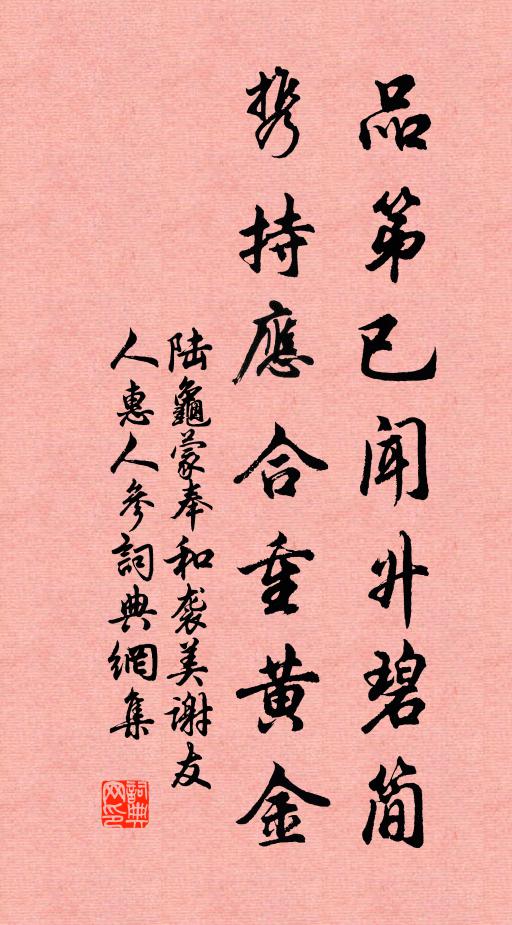 品第已闻升碧简
携持應合重黄金
陆龜蒙奉和袭美谢友
人惠人參詞典網集
詞典网印